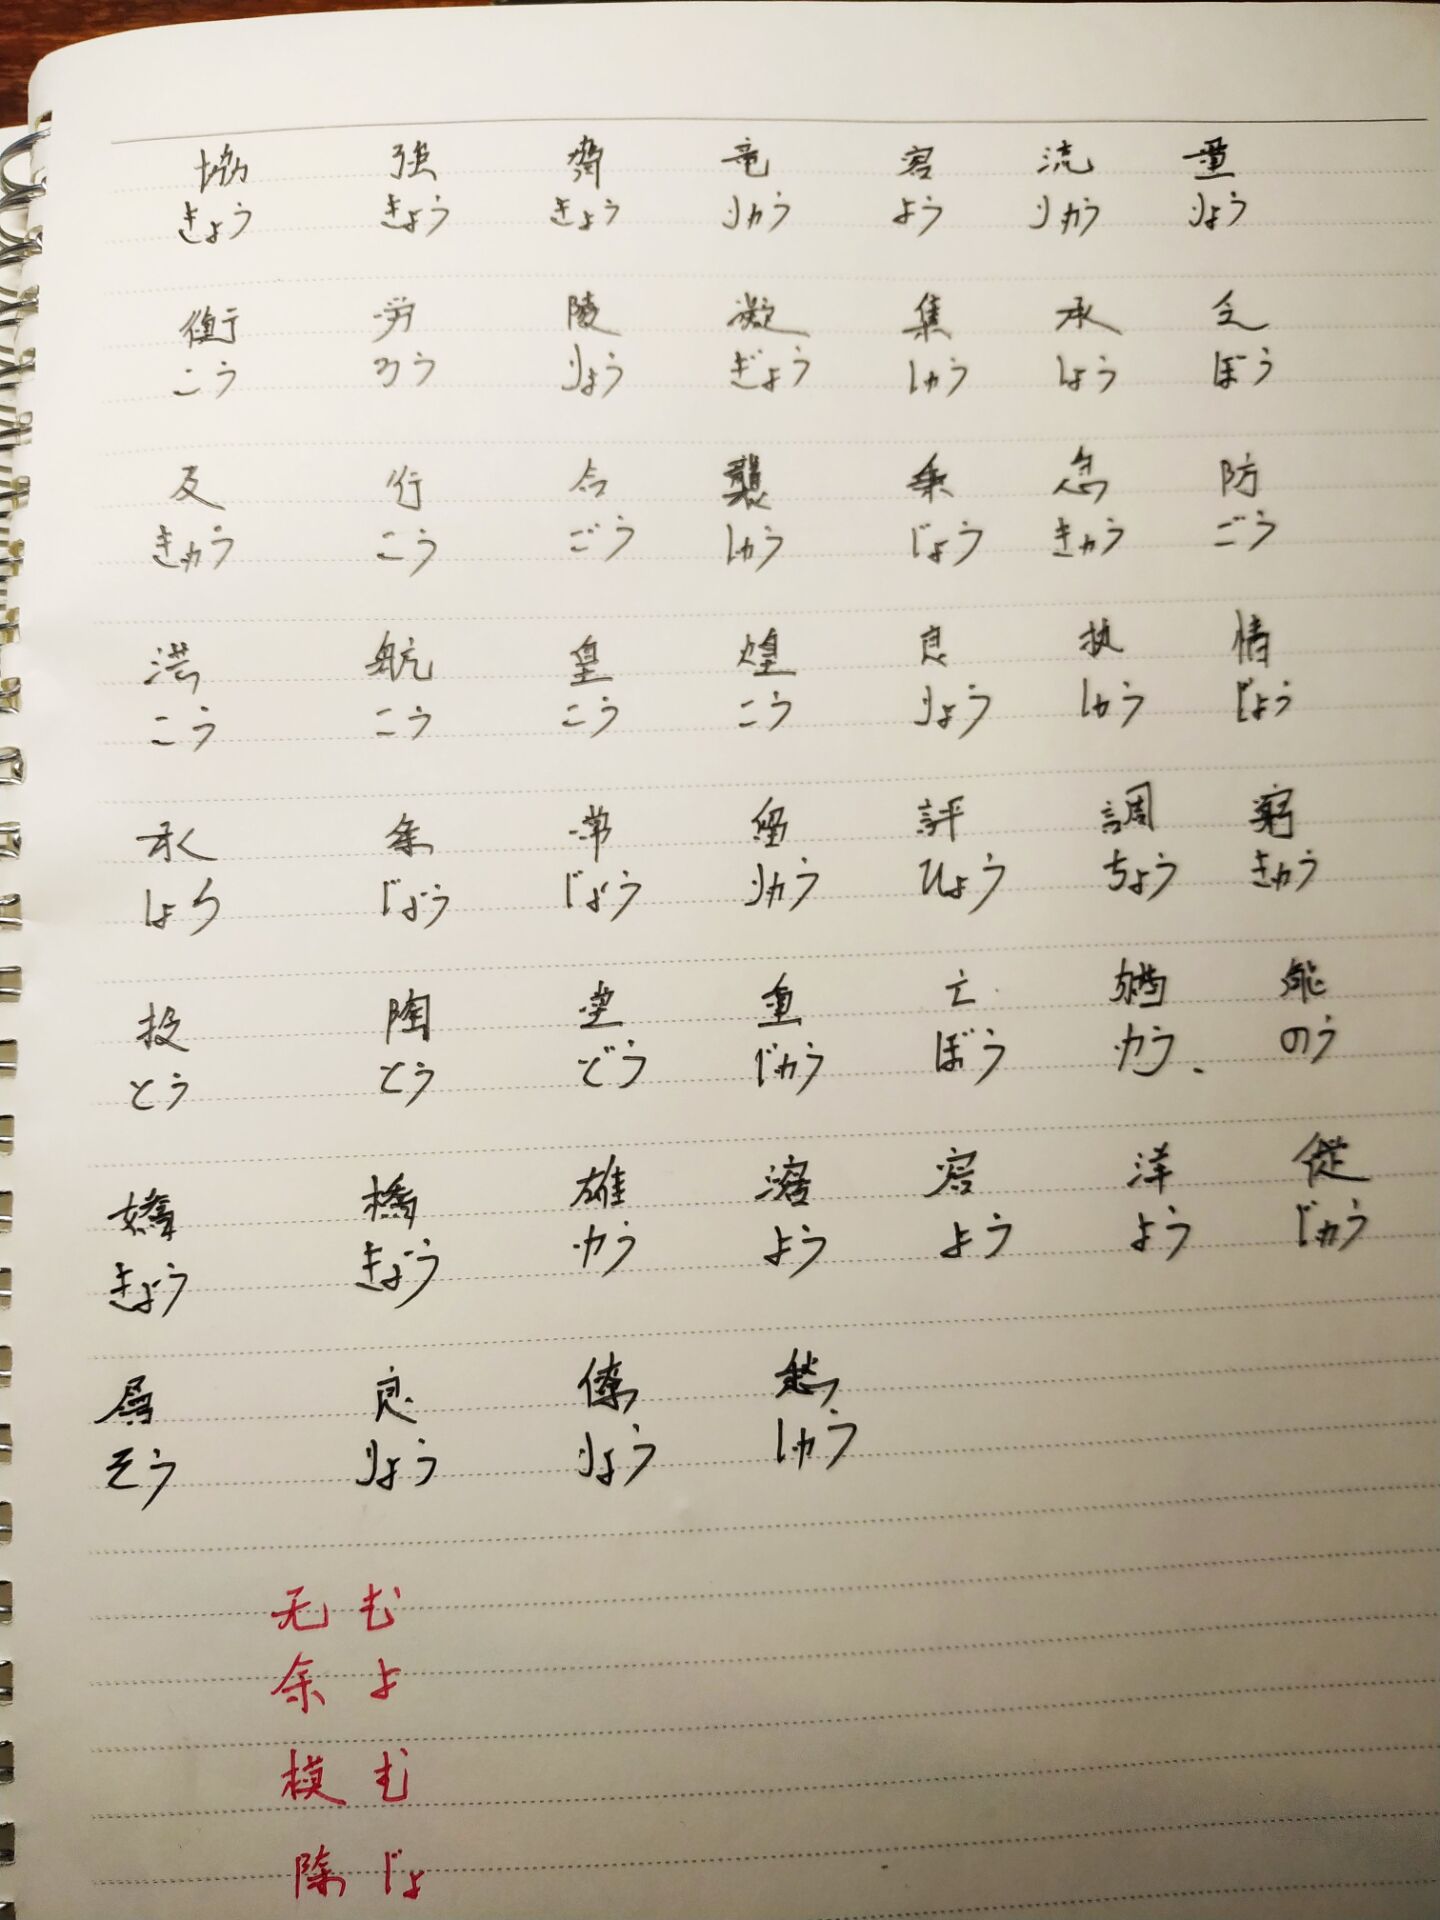 協 強 響 竜 容 流 量
きょう きょう きょう りゅう よう りゅう りょう
衝 労 陵 凝 集 承 乏
こう ろう りょう ぎょう しゅう しょう ぼう
及 行 合 襲 乗 急 防
きゅう こう ごう しゅう じょう きゅう ごう
洪 航 皇 煌 良 执 情
こう こう こう こう りょう しゅう じょう
承 条 常 留 評 調 窮
しょう じょう じょう りゅう ひょう ちょう きゅう
投 陶 堂 重 亡 能
とう とう どう じゅう ぼう ゆう のう
嬌 橋 雄 溶 容 洋 従
きょう きょう ゆう よう よう よう じゅう
層 良 僚 愁
そう りょう りょう しゅう
无 む
余 よ
模 む
除 じょ